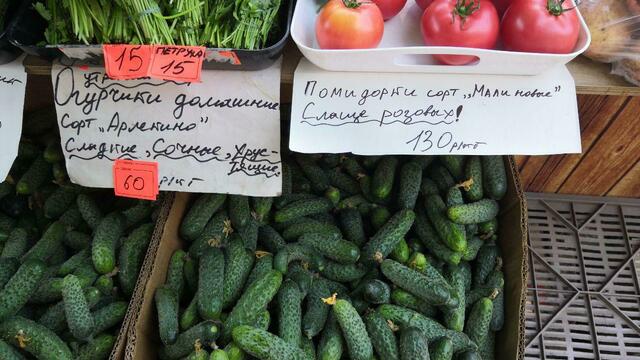 15
ПЕТРУШ
15
Огурчики домашние
сорт „Арлекино"
Сладкие, Сочные, Хрус-
тящие.
60 р/кг
Помидорки сорт „Малиновые"
Слаще розовых!
130 р/кг